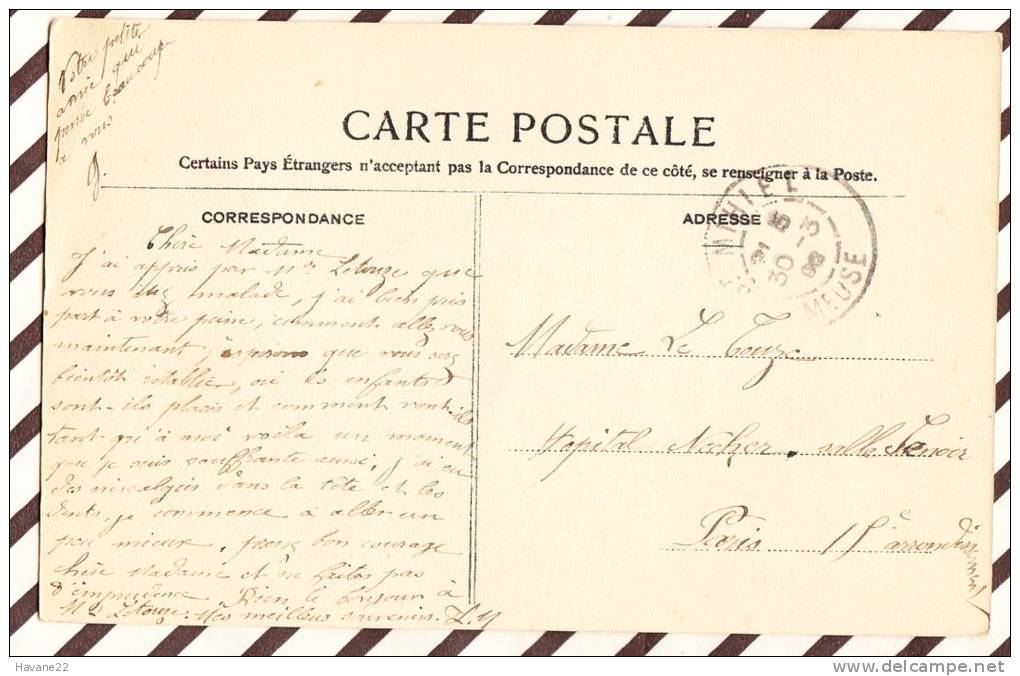 Votre petite
amie qui
pense beaucoup
a vous
J.
CARTE POSTALE
Certains Pays Étrangers n'acceptant pas la Correspondance de ce côté, se renseigner à la Poste.
CORRESPONDANCE
Chère Madame
J'ai appris par Mr Letouze que
vous malade, j'ai bien pris
part à votre peine, comment allez vous
maintenant, esperons que vous serez
bientôt rétablie, où les enfants
sont-ils placés et comment vont-ils
tant qu'à moi voila un moment
que je suis souffrante aussi, j'ai eu
des nivralgies dans la tête et les
dents, je commence à aller un
peu mieux, prenez bon courage
chère Madame et ne faites pas
d'imprudence Bien le bonjour à
Mr Letouze. Mes meilleurs souvenirs.
ADRESSE
ST MIHIEL
30 -3
MEUSE
Madame Le Touze
Hopital Necker, salle Lenoir
Paris 15 è arrondissement
Havane22
delcampe.net